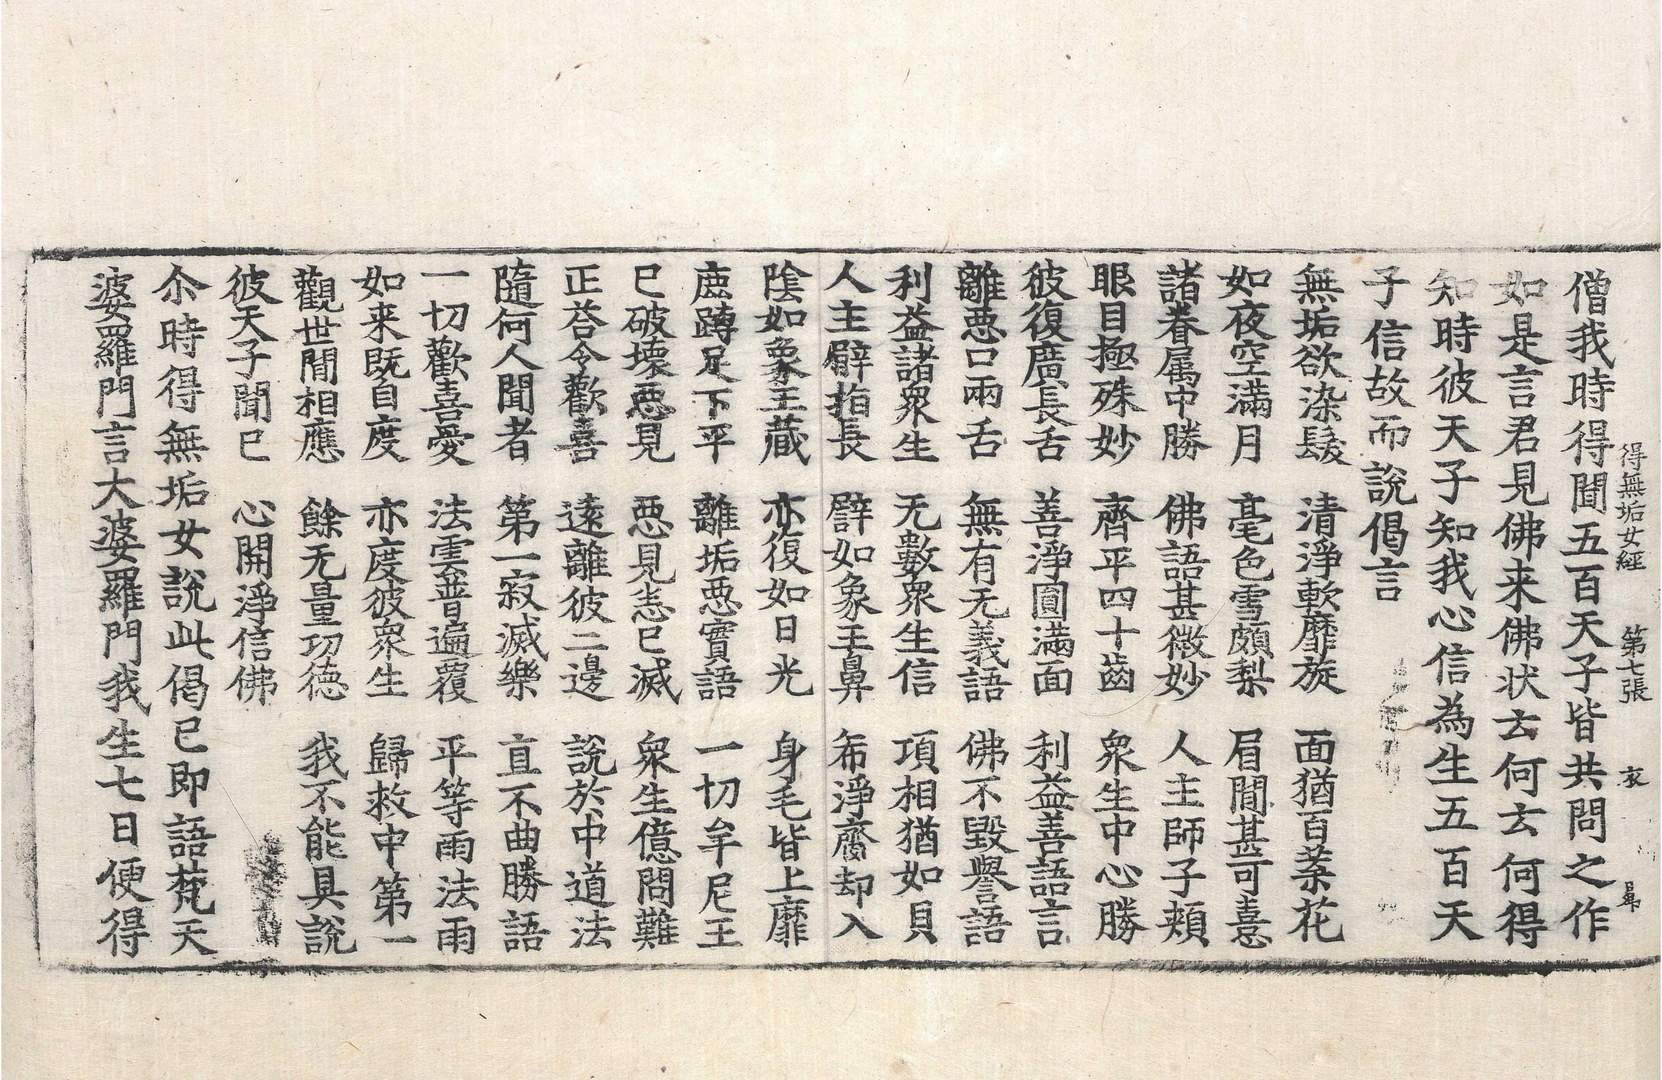 得無垢女經 第七張 衣
僧我時得聞五百天子皆共問之作
如是言君見佛来佛状云何云何得
知時彼天子知我心信為生五百天
子信故而說偈言
無垢欲染髮 清淨軟靡旋 面猶百葉花
如夜空滿月 毫色雪頗梨 眉間甚可憙
諸眷属中勝 佛語甚微妙 人主師子頰
眼目極殊妙 齊平四十齒 衆生中心勝
彼復廣長舌 善淨圓滿面 利益善語言
離惡口兩舌 無有无義語 佛不毀譽語
利益諸衆生 无數衆生信 項相猶如貝
人主臂指長 臂如象王鼻 希淨齎却入
陰如象王藏 亦復如日光 身毛皆上靡
鹿蹲足下平 離垢惡實語 一切牟尼王
已破壞惡見 惡見恙已滅 衆生億問難
正荅令歡喜 遠離彼二邊 說於中道法
隨何人聞者 第一寂滅樂 直不曲勝語
一切歡喜愛 法雲普遍覆 平等雨法雨
如来既自度 亦度彼衆生 歸救中第一
觀世間相應 餘无量功德 我不能具說
彼天子聞已 心開淨信佛
尒時得無垢女說此偈已即語梵天
婆羅門言大婆羅門我生七日便得